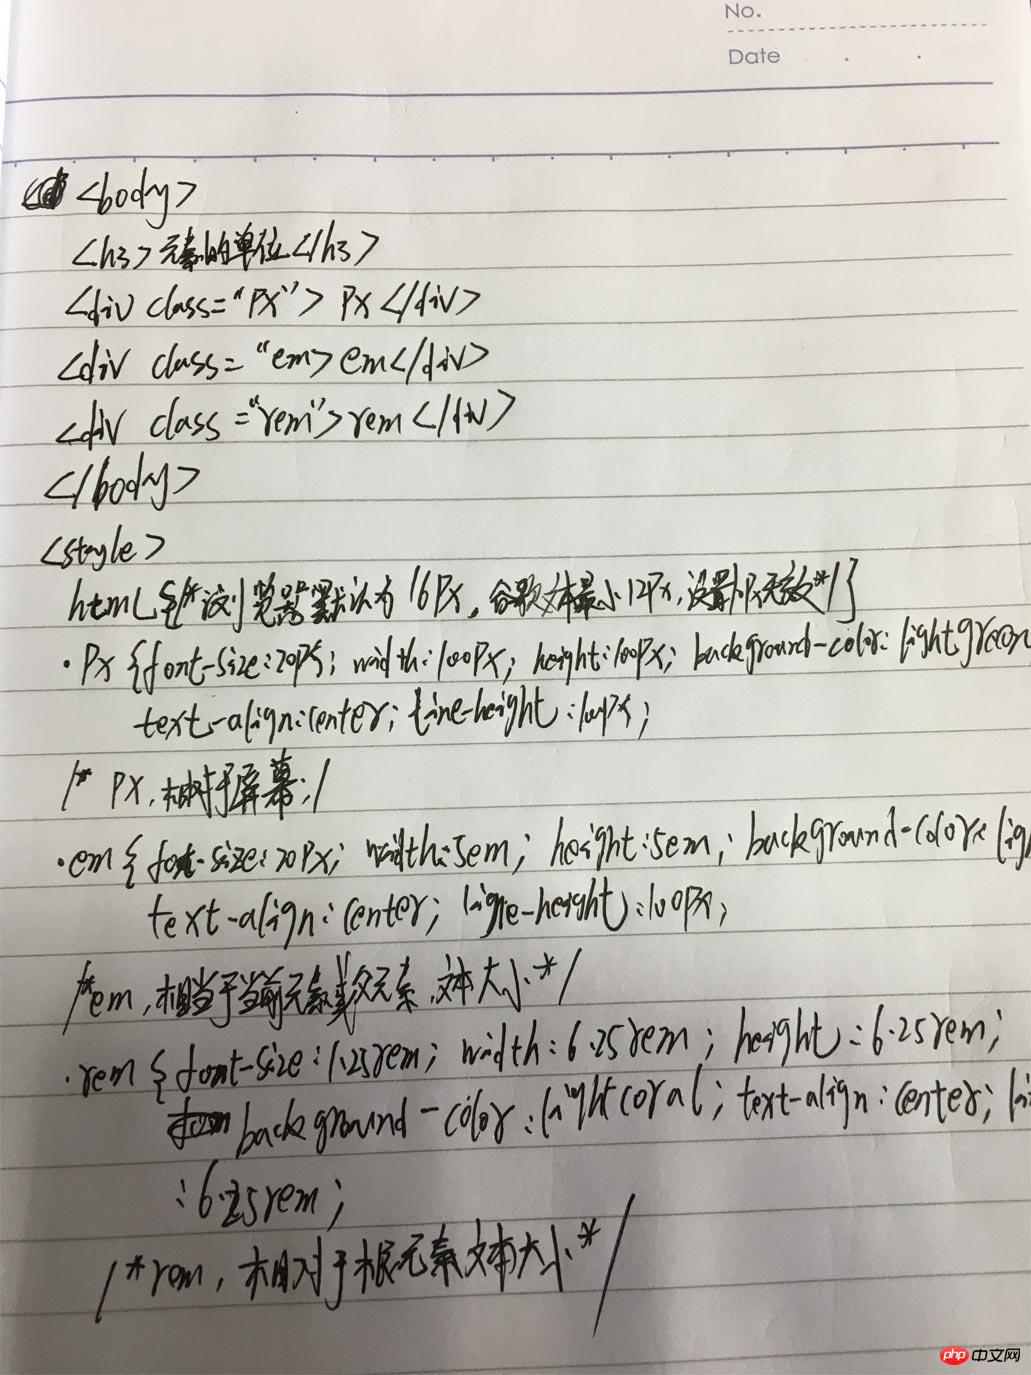 No.
Date
<body>
<h3>元素的单位</h3>
<div class="Px">Px</div>
<div class="em>em</div>
<div class="rem">rem</div>
</body>
<style>
html{/*浏览器默认为16Px,谷歌文本最小12Px,设置 无效*/}
.Px{font-size:20Px; width:100Px; height:100Px; background-color:lightgreen
text-align:center; line-height:100Px;
/* Px,相对于屏幕;/
.em{font-size:20Px; width:5em; height:5em; background-color:lig
text-align:center; ligne-height:100Px;
/*em,相当于当前元素或父元素,文本大小*/
.rem{font-size:1.25rem; width:6.25rem; height:6.25rem;
background-color:lightcoral; text-align:center; li
:6.25rem;
/*rem,相对于根元素文本大小*/
php 中文网